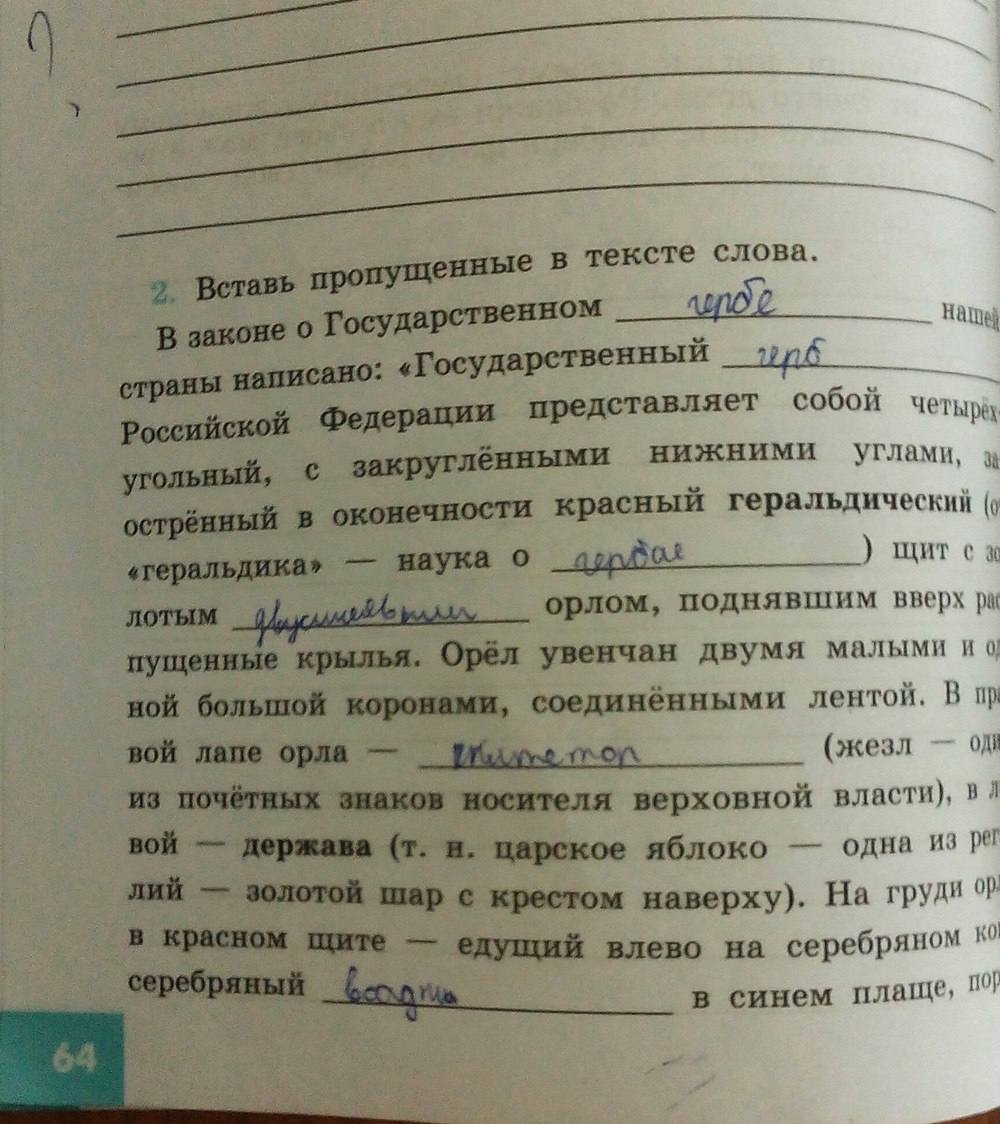 2. Вставь пропущенные в тексте слова.
В законе о Государственном гербе нашей
страны написано: «Государственный герб
Российской Федерации представляет собой четырёх-
угольный, с закруглёнными нижними углами, за
острённый в оконечности красный геральдический (о
«геральдика» — наука о гербае) щит с зо
лотым двухглавым орлом, поднявшим вверх рас
пущенные крылья. Орёл увенчан двумя малыми и од
ной большой коронами, соединёнными лентой. В пра
вой лапе орла — скипетор (жезл — оди
из почётных знаков носителя верховной власти), в л
вой — держава (т. н. царское яблоко — одна из рег
лий — золотой шар с крестом наверху). На груди орл
в красном щите — едущий влево на серебряном кон
серебряный в синем плаще, пор
64